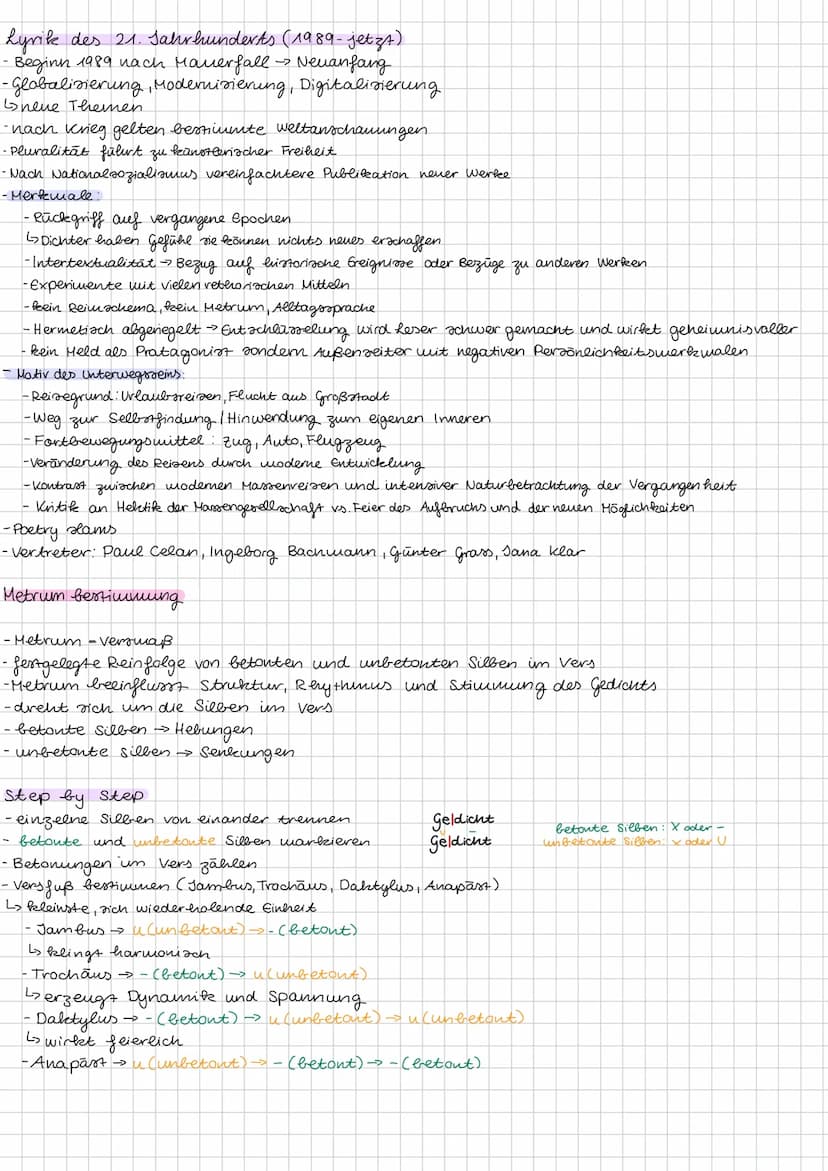 Lyrik des 21. Jahrhunderts (1989-jetzt)
- Beginn 1989 nach Mauerfall → Neuanfang
- Globalisierung, Modernisierung, Digitalisierung
↳ neue Themen
- nach Krieg gelten bestimmte Weltanschauungen
- Pluralität führt zu künstlerischer Freiheit
- Nach Nationalsozialismus vereinfachtere Publikation neuer Werke
- Merkmale:
- Rückgriff auf vergangene Epochen
↳ Dichter haben Gefühl sie können nichts neues erschaffen
- Intertextualität → Bezug auf historische Ereignisse oder Bezüge zu anderen Werken
- Experimente mit vielen rethorischen Mitteln
- kein Reimschema, kein Metrum, Alltagssprache
- Hermetisch abgeriegelt → Entschlüsselung wird Leser schwer gemacht und wirkt geheimnisvoller
- kein Held als Pratagonist sondern Außenseiter mit negativen Persönlichkeitsmerkmalen
- Motiv des Unterwegsseins:
- Reisegrund: Urlaubsreisen, Flucht aus Großstadt
- Weg zur Selbstfindung / Hinwendung zum eigenen Inneren
- Fortbewegungsmittel: Zug, Auto, Flugzeug
- Veränderung des Reisens durch moderne Entwicklung
- Kontrast zwischen modernen Massenreisen und intensiver Naturbetrachtung der Vergangenheit
- Kritik an Hektik der Massengesellschaft vs. Feier des Aufbruchs und der neuen Möglichkeiten
- Poetry slams
- Vertreter: Paul Celan, Ingeborg Bachmann, Günter Grass, Jana Klar
Metrum bestimmung
- Metrum = Versmaß
- festgelegte Reinfolge von betonten und unbetonten Silben im Vers
- Metrum beeinflusst Struktur, Rhythmus und Stimmung des Gedichts
- dreht sich um die Silben im Vers
- betonte Silben → Hebungen
- unbetonte Silben → Senkungen
Step by Step
- einzelne Silben von einander trennen Ge|dicht
- betonte und unbetonte Silben markieren Ge|dicht
betonte Silben: X oder –
unbetonte Silben: x oder U
- Betonungen im Vers zählen
- Versfuß bestimmen (Jambus, Trochäus, Daktylus, Anapäst)
↳ kleinste, sich wiederholende Einheit
- Jambus → u (unbetont) → - (betont)
↳ klingt harmonisch
- Trochäus → - (betont) → u (unbetont)
↳ erzeugt Dynamik und Spannung
- Daktylus → - (betont) → u (unbetont) → u (unbetont)
↳ wirkt feierlich
- Anapäst → u (unbetont) → - (betont) → - (betont)